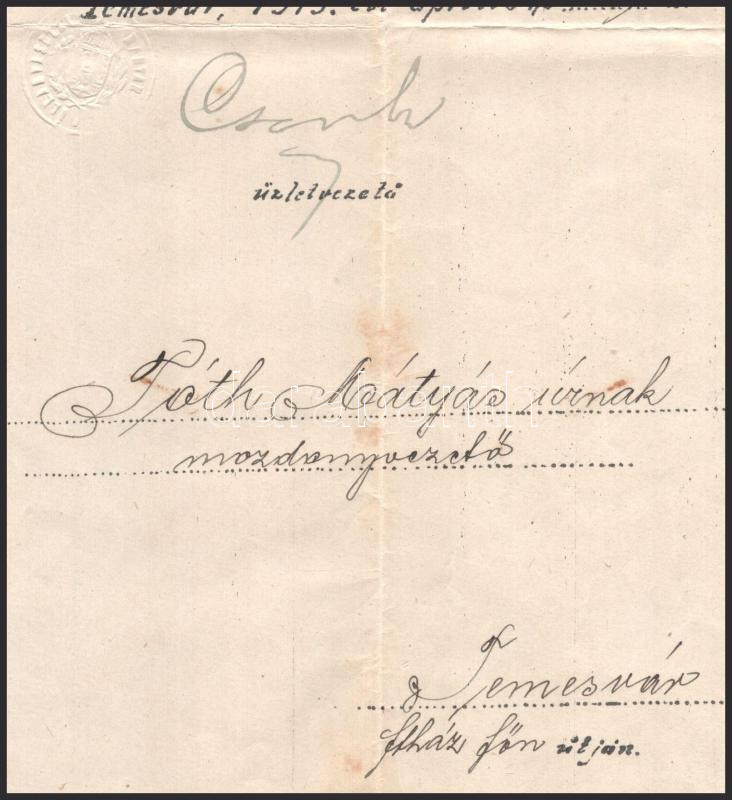 Temesvár, 1913. évi április hó
Csonka
üzletvezető
Tóth Mátyás úrnak
mozdonyvezető
Temesvár
ftház főn útján.